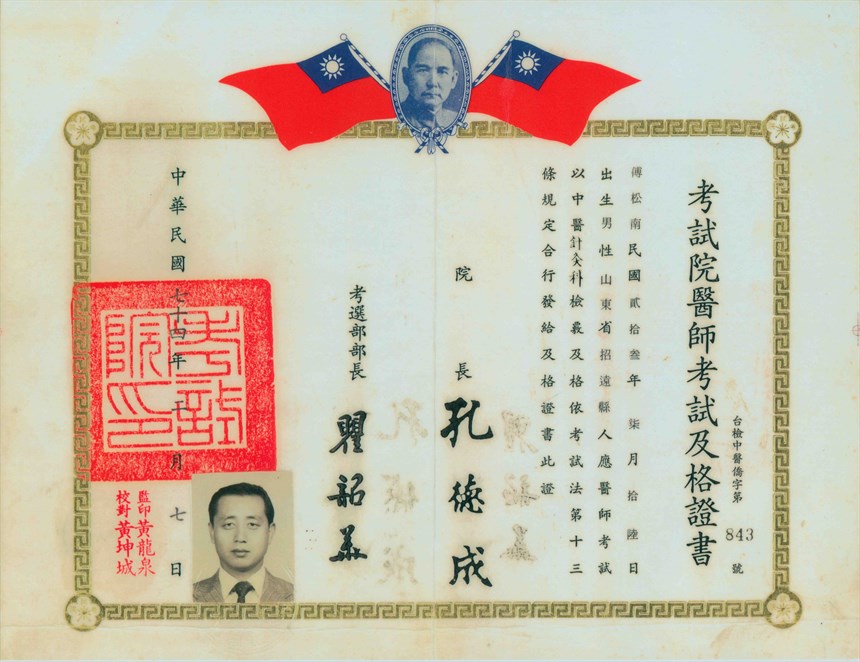 考試院醫師考試及格證書
台檢中醫僑字第843號
傅松南民國貳拾叁年柒月拾陸日
出生男性山東省招遠縣人應醫師考試
以中醫針灸科檢覈及格依考試法第十三
條規定合行發給及格證書此證
院長 孔德成
考選部部長 瞿韶華
中華民國七十四年月七日
考試院印
監印黃龍泉
校對黃坤城